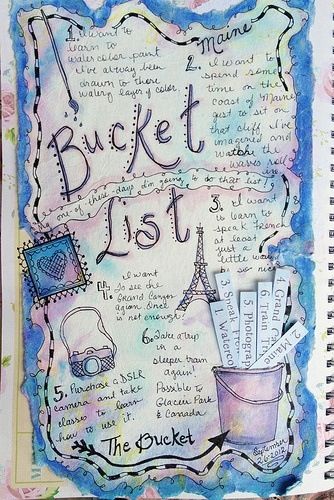 1. I want to
learn to
watercolor paint
I've always been
drawn to those
watery layers of color.
Maine
2. I want to
spend some
time on the
coast of Maine
just to sit on
that cliff I've
imagined and
watch the
waves roll
in
Bucket
one of these days I'm going to do that list!
List
3. I want
to learn to
speak French
at least
just a
little
be so nice
4. I want
To see the
Grand Canyon
again. Once is
not enough!
5. Purchase a DSLR
camera and take
classes to learn
how to use it.
6. Take a trip
in a
sleeper train
again!
Possibly to
Glacier Park
& Canada
The Bucket
1. Waterco
3. Speak Fre
5. Photograp
6. Train
4. Grand C
2. Maine
September
26 2012